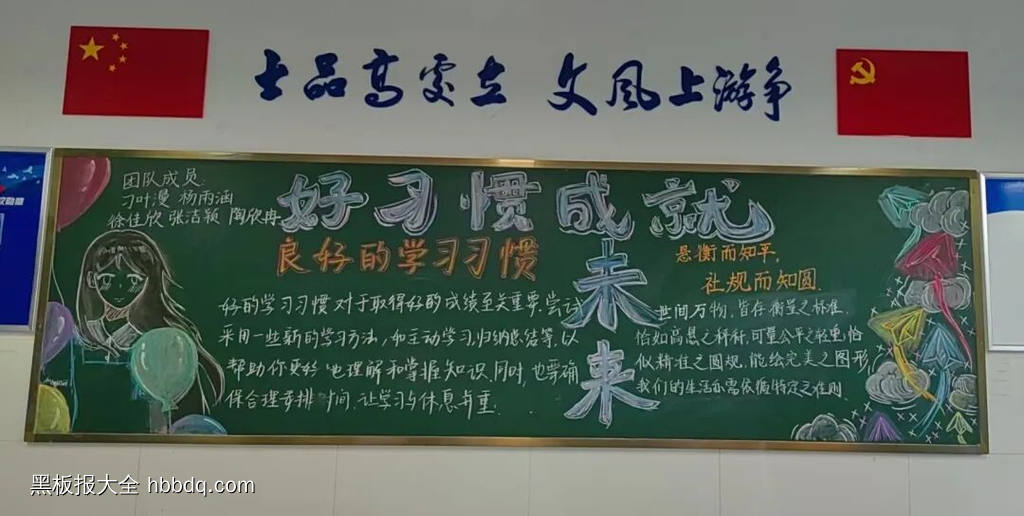 士品高处立 文风上游争
团队成员
刁叶漫 杨雨涵
徐佳欣 张洁颖 陶欣冉
好习惯成就
未来
良好的学习习惯
好的学习习惯对于取得好的成绩至关重要.尝试
采用一些新的学习方法,如主动学习.归纳总结等,以
帮助你更好地理解和掌握知识.同时,也要确
保合理安排时间.让学习与休息并重.
悬衡而知平,
社规而知圆.
世间万物,皆存衡量之标准.
恰如高悬之秤杆,可量公平之轻重,恰
似精准之圆规,能绘完美之图形,
我们的生活亦需依循特定之准则.
黑板报大全 hbbdq.com